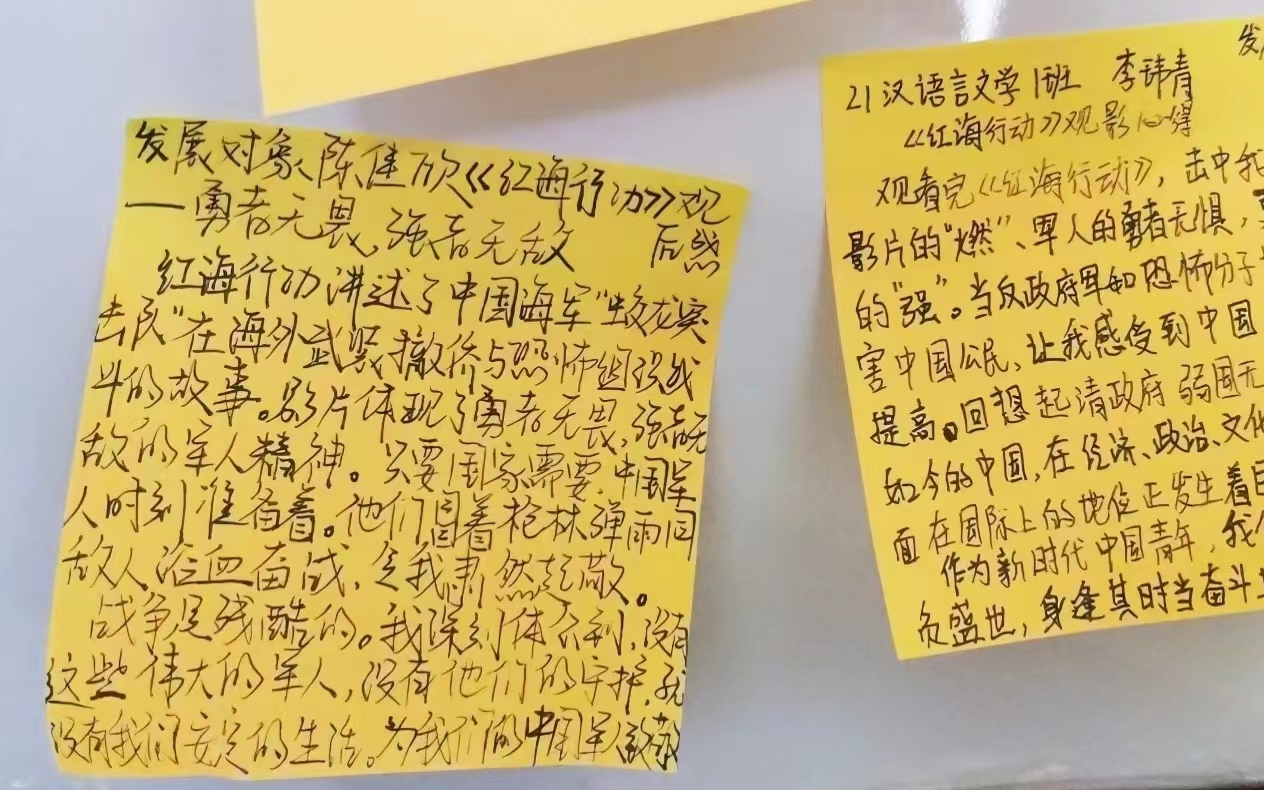 发展对象陈佳欣《红海行动》观
后感
——勇者无畏,强者无敌
红海行动讲述了中国海军“蛟龙突
击队”在海外武装撤侨与恐怖组织战
斗的故事。影片体现了勇者无畏,强者无
敌的军人精神。只要国家需要,中国军
人时刻准备着。他们冒着枪林弹雨同
敌人浴血奋战,令我肃然起敬。
战争是残酷的。我深刻体会到,没有
这些伟大的军人,没有他们的守护,就
没有我们安定的生活。为我们的中国军人致敬
发
21汉语言文学1班 李玮青
《红海行动》观影心得
观看完《红海行动》,击中我
影片的“燃”、军人的勇者无惧,
的“强”。当反政府军和恐怖分子
害中国公民,让我感受到中国
提高。回想起清政府弱国无
如今的中国,在经济、政治、文化
面在国际上的地位正发生着
作为新时代中国青年,我
负盛世,身逢其时当奋斗